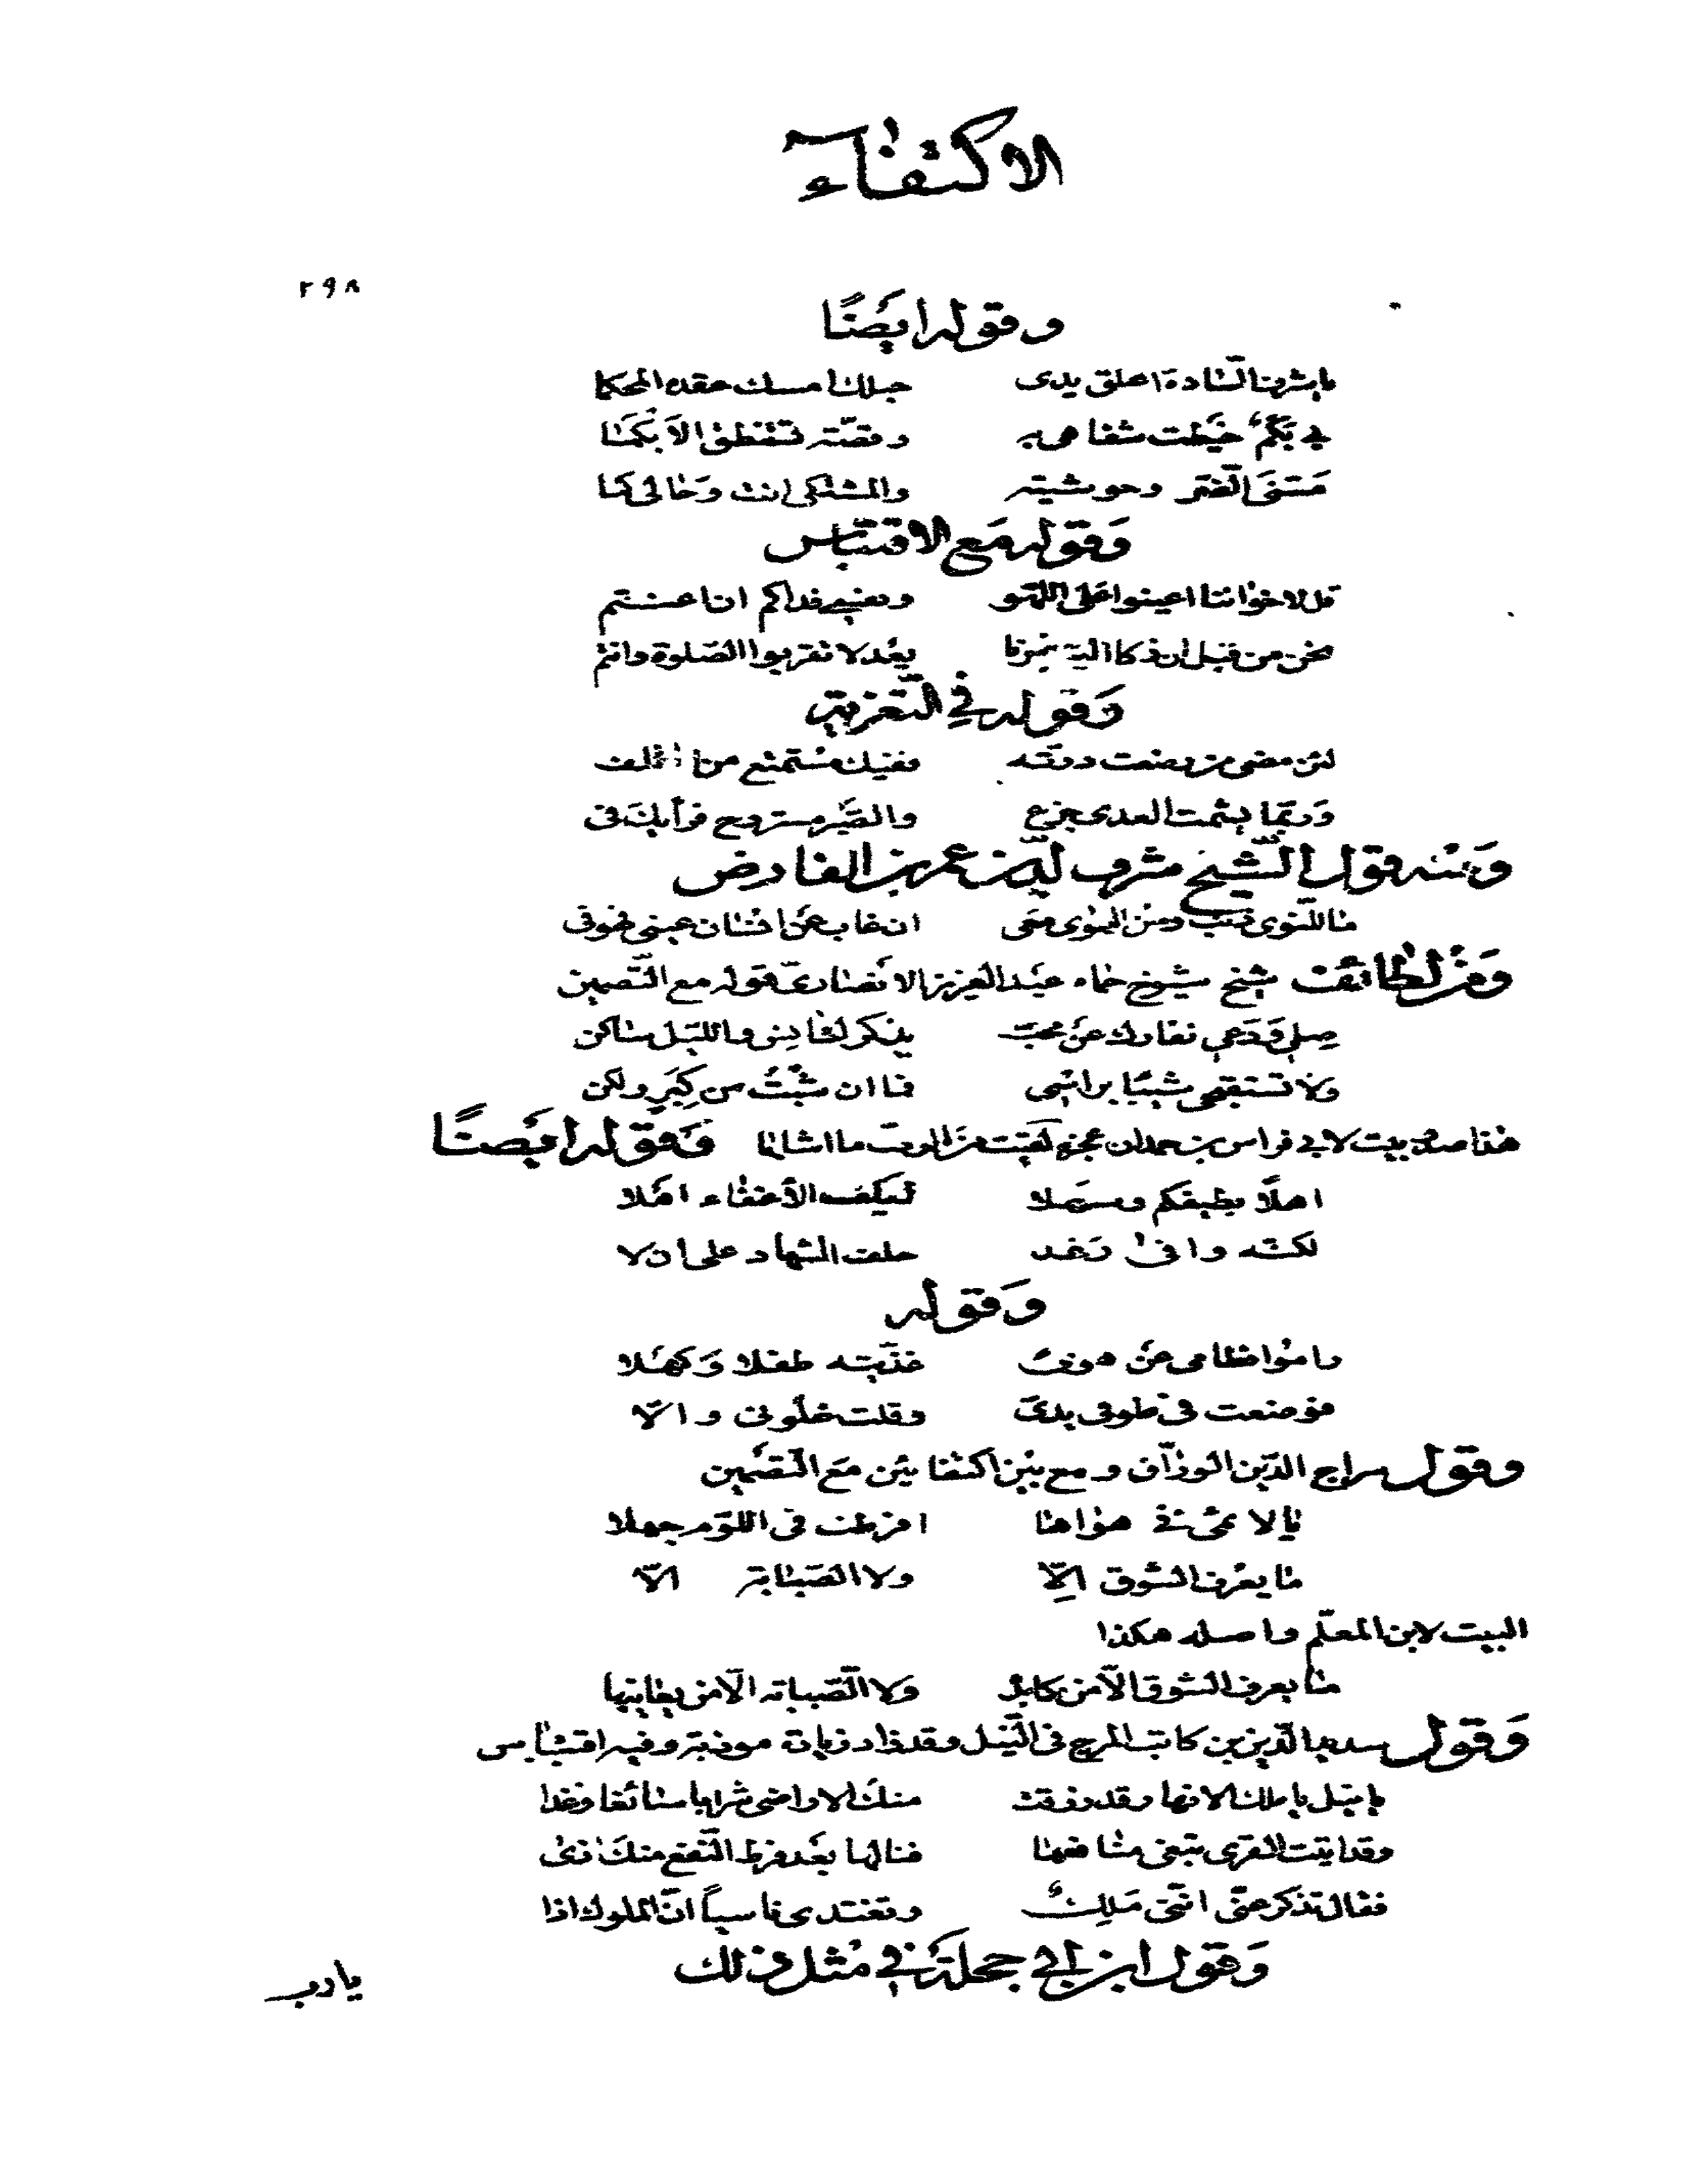 الاكتفاء
٢٩٨
وقوله ايضًا
يا شرف السّادة اعلق يدى حبلك امسك عقده المحكما
بي بكمٌ خيّطت شفاهى به وقصّته تنطق الأبكما
مسّنى الضّر وحوشيته والمشتكى انت وحالى كما
وَقوله مَع الاقتباس
قل لاخواننا اعينوا على اللهو ونفسي فداكم ان اعنتم
نحن من قبل ان
بعد لا تقربوا الصّلوة وانتم
وَقوله في التّعزية
لئن مضى من
ففيك مستمتع من الخلف
وَربّما يشمت العدى جزع والصّبر مستروح فرأيك فى
وَمنه قول الشّيخ شرف الدّين عمر بن الفارض
ما للنّوى ذنب ومن اهوى معى ان غاب عن انسان عينى فهو فى
وَمن لطائف شيخ شيوخ حماه عبد العزيز الانصارىّ قوله مع التّضمين
صلي وَدَعي نفارك عن محبّ بذكرك انس والليل ساكن
ولا تستقبحى شيبًا براسى فما ان شبتُ من كِبَرٍ ولكن
هذا صدر بيت لابي فراس بن حمدان عجزه لقيت من الاحبّة ما اشابا وَقوله ايضًا
اهلًا بطيفكم وسهلا لو كنت للأغفاء اهلا
لكنّه وافى وَقد حلف السّهاد على ان لا
وَقوله
راموا فطامى عن هوىً غذّيته طفلا وَكهلا
فوضعت فى طوقى يدىّ وقلت خلّونى والّا
وقول سراج الدّين الورّاق وجمع بين اكتفائين مَع التّضمين
يا لائمى فى هواها افرطت فى اللّوم جهلا
ما يعرف الشّوق الّا ولا الصّبابة الّا
البيت لابن المعلّم واصله هكذا
ما يعرف الشّوق الّا من كابد ولا الصّبابة الّا من يعانيها
وَقول سعد الدّين بن كاتب المرج فى النّيل وقد زاد زيادة موذية وفيه اقتباس
يا نيل يا ملك الانهار قد رزقت منك الاراضى شرابا سائغا وغذا
وقد اتيت القرى تبغى منافعها فنالها بعد فرط النّفع منك اذى
فقال تذكر عنّى انّنى مَلِكٌ وتغتدى ناسياً انّ الملوك اذا
وَقول ابن ابي حجلة في مثل ذلك
يا رب